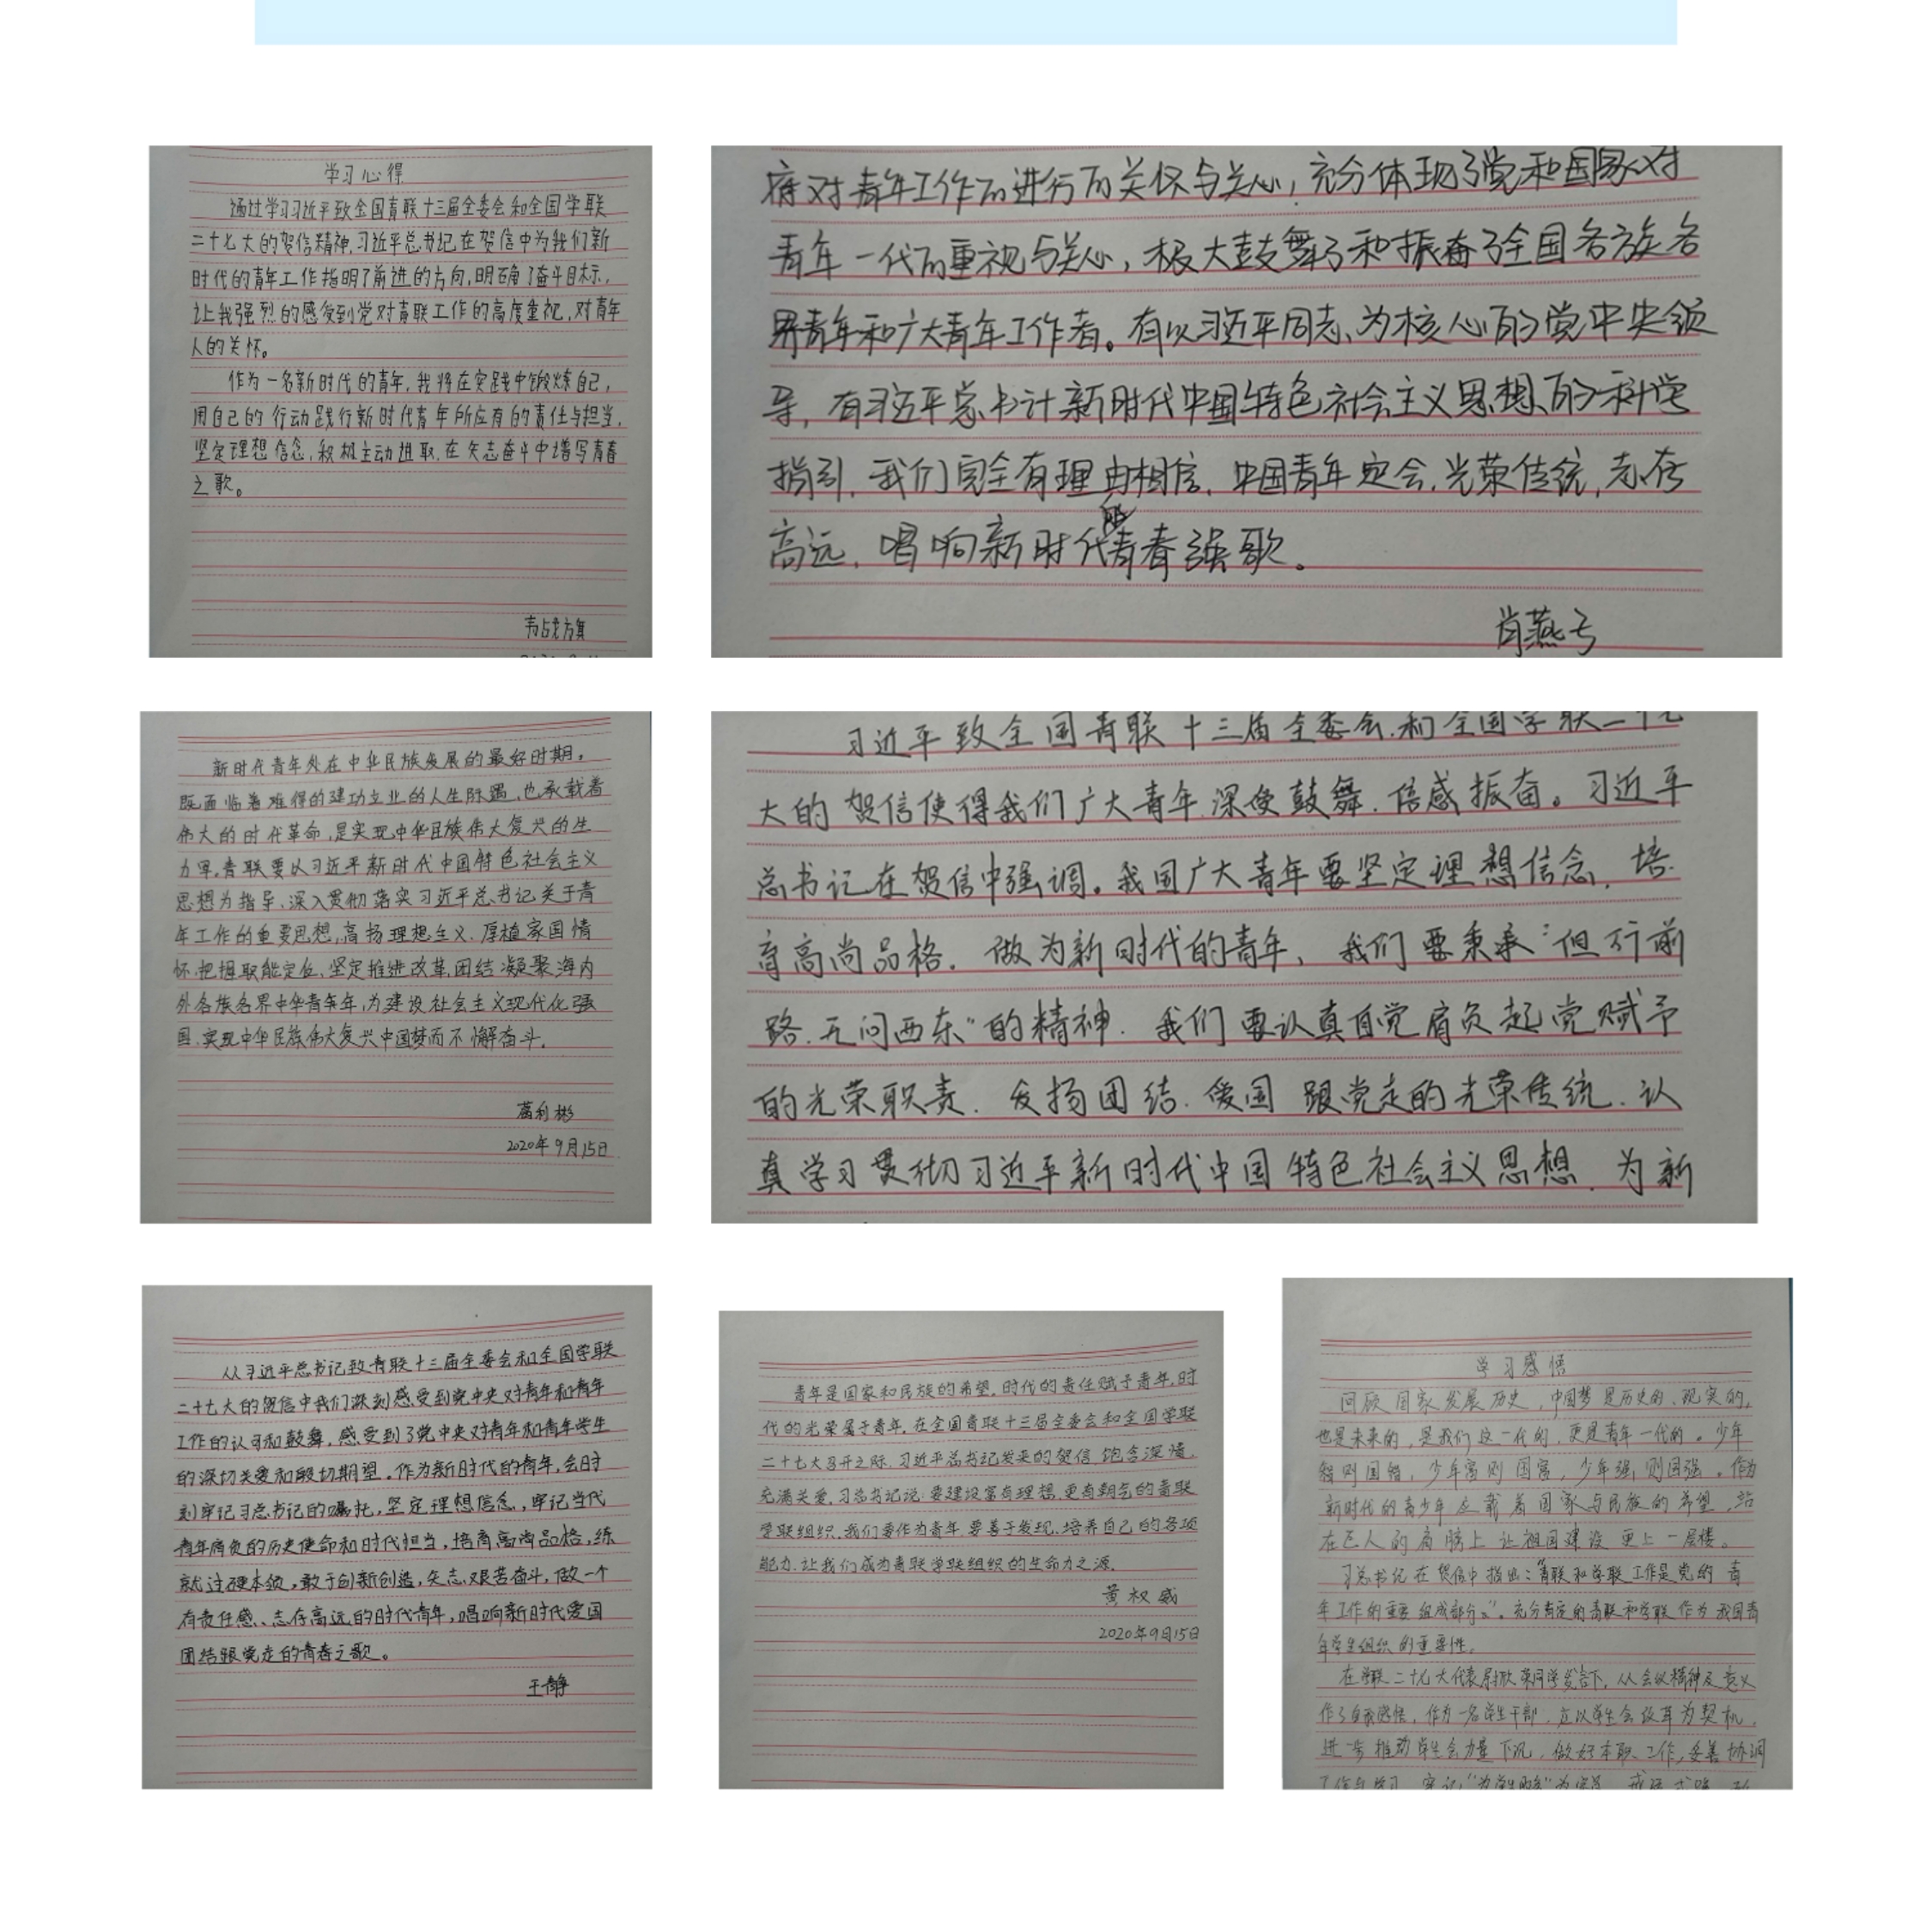 学习心得
通过学习习近平致全国青联十三届全委会和全国学联
二十七大的贺信精神,习近平总书记在贺信中为我们新
时代的青年工作指明了前进的方向,明确了奋斗目标,
让我强烈的感受到党对青联工作的高度重视,对青年
人的关怀。
作为一名新时代的青年,我将在实践中锻炼自己,
用自己的行动践行新时代青年所应有的责任与担当,
坚定理想信念,积极主动进取,在矢志奋斗中谱写青春
之歌。
对青年工作的进行的关怀与关心,充分体现了党和国家对
青年一代的重视与关心,极大鼓舞了和振奋了全国各族各
界青年和广大青年工作者。有以习近平同志为核心的党中央领
导,有习近平总书计新时代中国特色社会主义思想的科学
指引,我们完全有理由相信,中国青年定会光荣传统,志存
高远,唱响新时代青春强歌。
肖燕
新时代青年处在中华民族发展的最好时期,
既面临着难得的建功立业的人生际遇,也承载着
伟大的时代革命,是实现中华民族伟大复兴的生
力军,青联要以习近平新时代中国特色社会主义
思想为指导,深入贯彻落实习近平总书记关于青
年工作的重要思想,高扬理想主义、厚植家国情
怀,把握职能定位、坚定推进改革,团结凝聚海内
外各族各界中华青年年,为建设社会主义现代化强
国、实现中华民族伟大复兴中国梦而不懈奋斗。
利彬
2020年9月15日
习近平致全国青联十三届全委会和全国学联二十七
大的贺信使得我们广大青年深受鼓舞、倍感振奋。习近平
总书记在贺信中强调。我国广大青年要坚定理想信念,培
育高尚品格。做为新时代的青年,我们要秉承“但行前
路,无问西东”的精神,我们要认真自觉肩负起党赋予
的光荣职责,发扬团结、爱国跟党走的光荣传统,认
真学习贯彻习近平新时代中国特色社会主义思想,为新
从习近平总书记致青联十三届全委会和全国学联
二十七大的贺信中我们深刻感受到党中央对青年和青年
工作的认可和鼓舞,感受到了党中央对青年和青年学生
的深切关爱和殷切期望。作为新时代的青年,会时
刻牢记习总书记的嘱托,坚定理想信念,牢记当代
青年肩负的历史使命和时代担当,培育高尚品格,练
就过硬本领,敢于创新创造,矢志艰苦奋斗,做一个
有责任感、志存高远的时代青年,唱响新时代爱国
团结跟党走的青春之歌。
王静
青年是国家和民族的希望,时代的责任赋予青年,时
代的光荣属于青年,在全国青联十三届全委会和全国学联
二十七大召开之际,习近平总书记发来的贺信,饱含深情,
充满关爱,习总书记说,要建设富有理想、更有朝气的青联
学联组织,我们要作为青年,要善于发现、培养自己的各项
能力,让我们成为青联学联组织的生命力之源。
黄权威
2020年9月15日
学习感悟
回顾国家发展历史,中国梦是历史的、现实的,
也是未来的,是我们这一代的,更是青年一代的。少年
智则国智,少年富则国富,少年强,则国强。作为
新时代的青少年应载着国家与民族的希望,站
在巨人的肩膀上让祖国建设更上一层楼。
习总书记在贺信中指出:“青联和学联工作是党的青
年工作的重要组成部分”。充分肯定的青联和学联作为我国青
年学生组织的重要性。
在学联二十七大代表同学发言下,从会议精神及意义
作了自我感悟,作为一名学生干部,应以学生会改革为契机,
进一步推动学生会力量下沉,做好本职工作,妥善协调